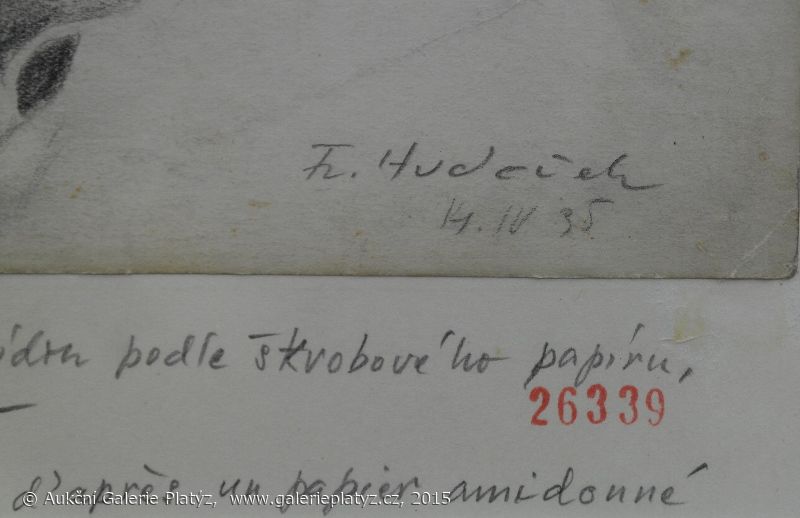 Fr. Hudeček
14. IV 35
podle škrobového papíru,
26339
d'après un papier amidonné
© Aukční Galerie Platýz, www.galerieplatyz.cz, 2015